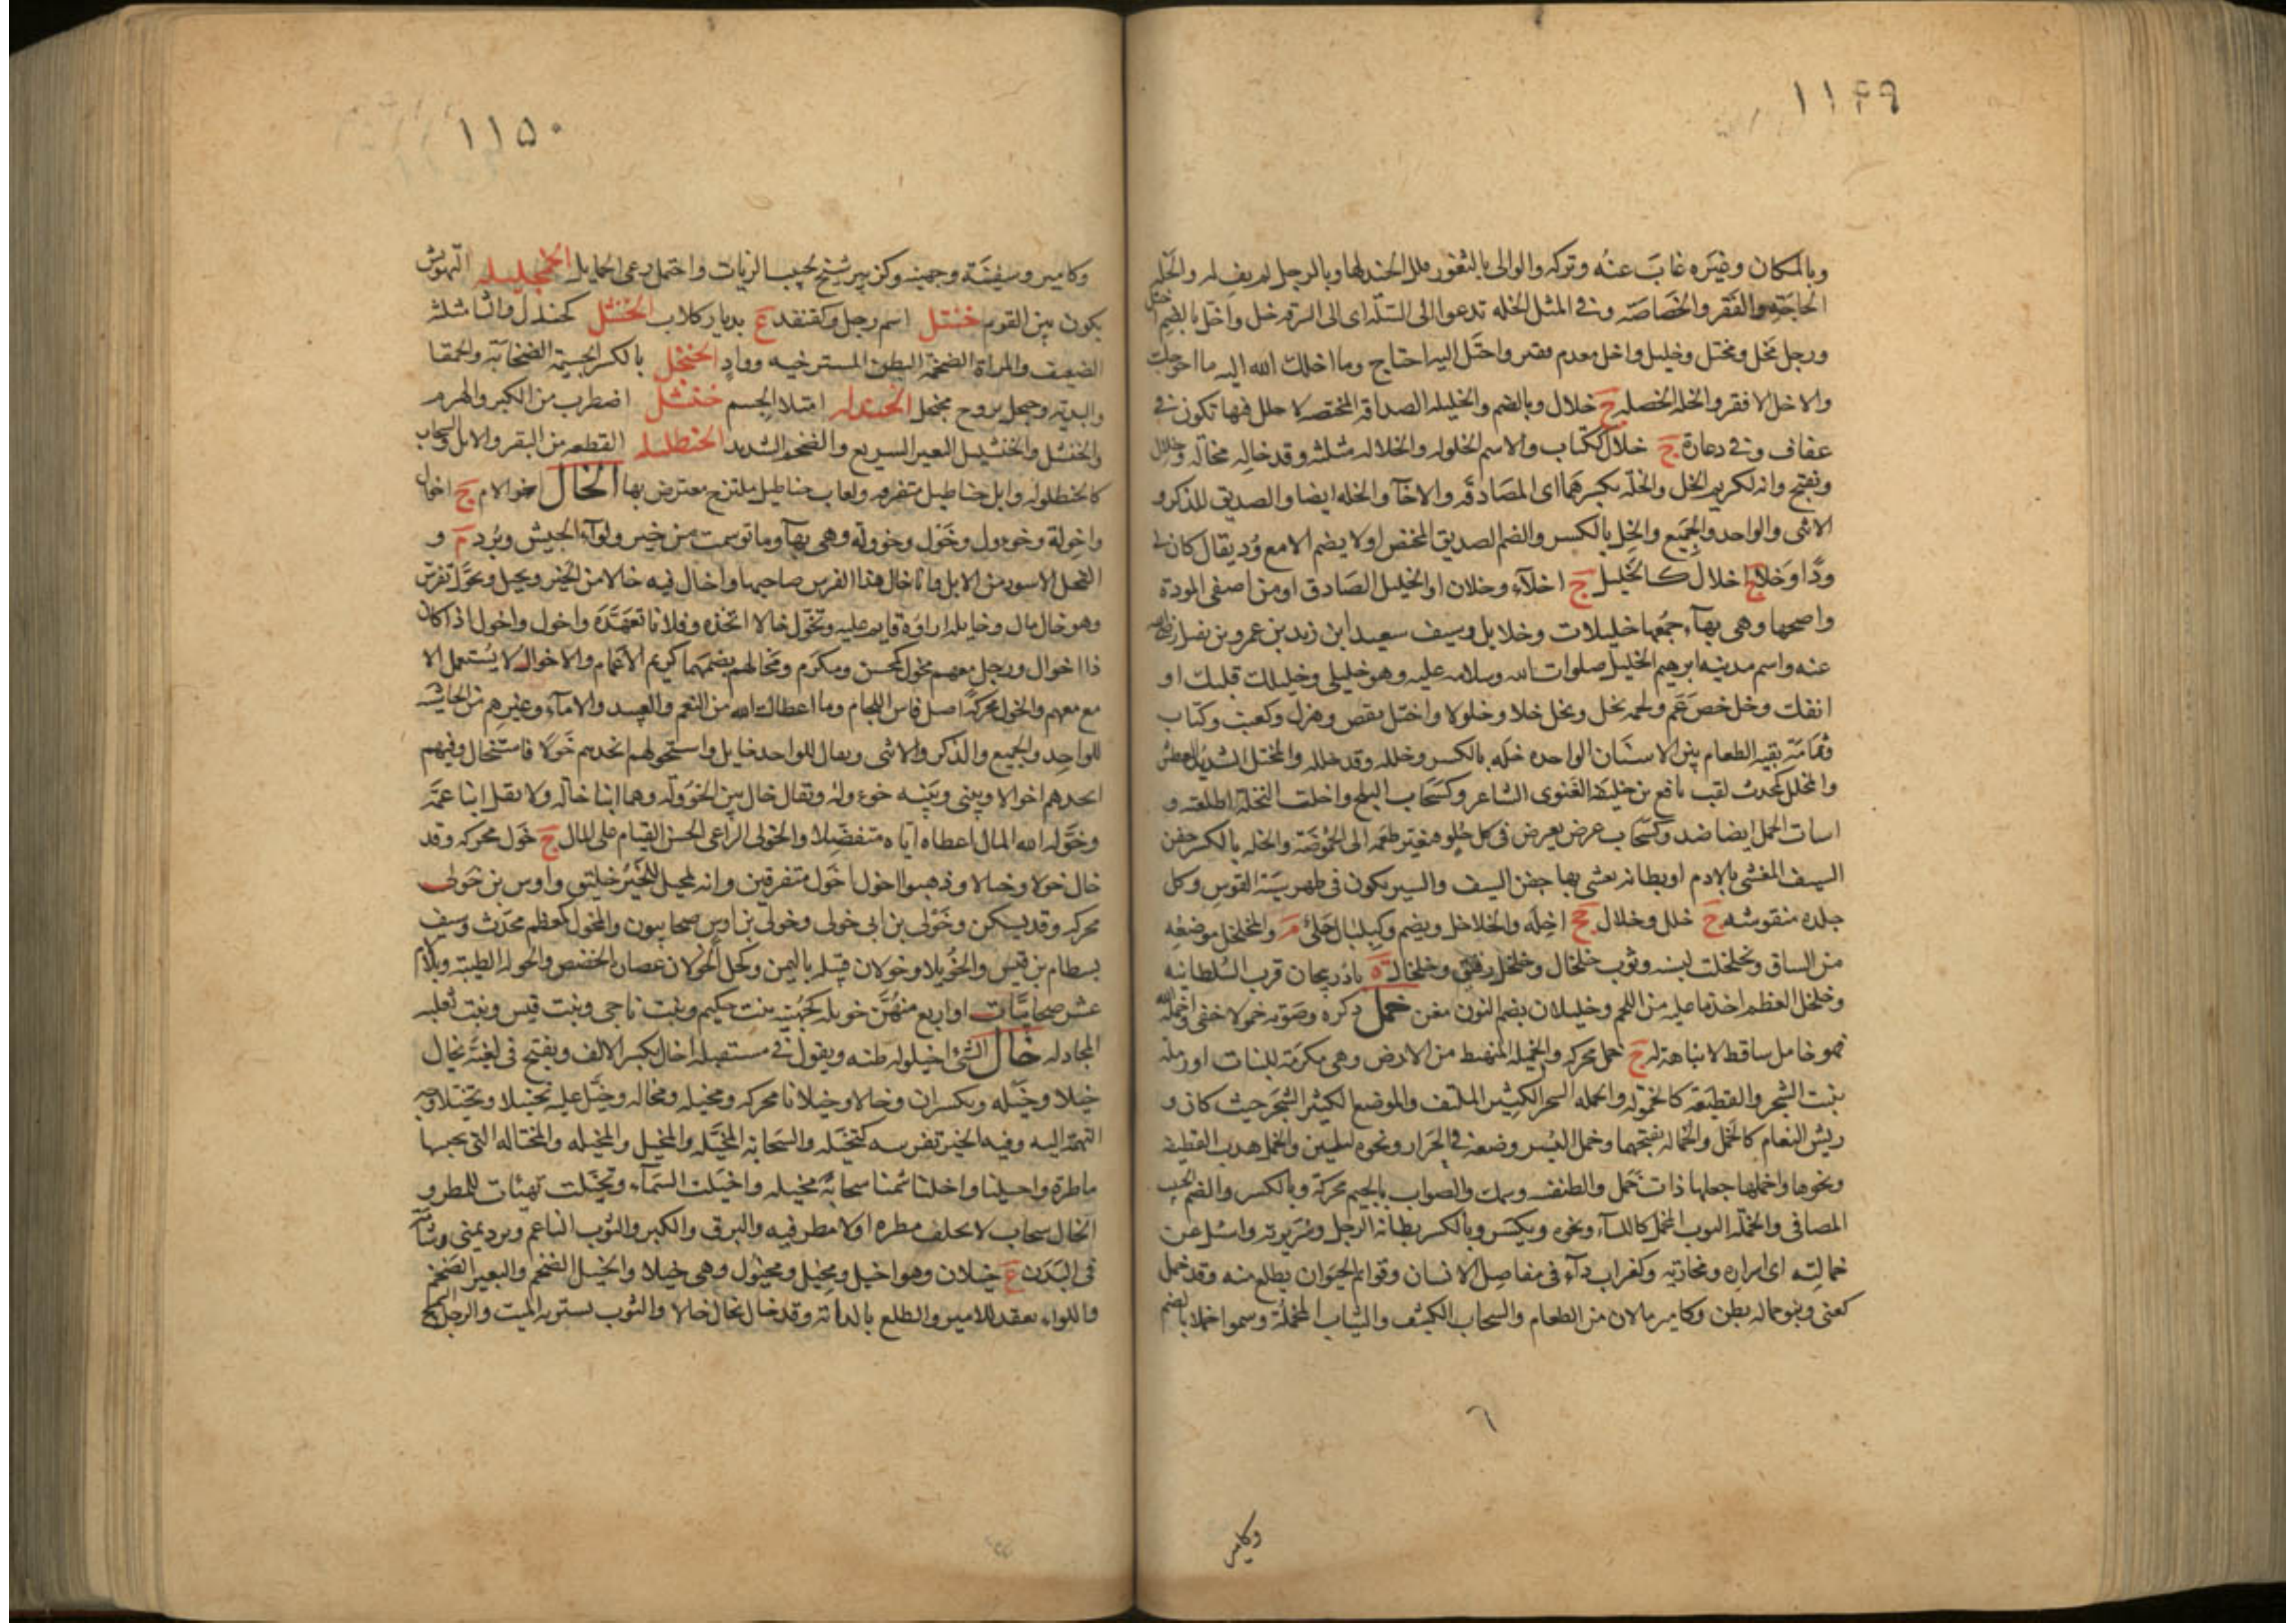 ١١۴٩
وبالمكان وغيره غاب عنه وتركه والوالى بالثغور قلل الجند بها وبالرجل لم يف له والخلة
الحاجة والفقر والخصاصة وفى المثل الخله تدعوا الى السلة اى الى السرقه خل واخل بالضم
ورجل مخل ومختل وخليل واخل معدم فقير واختل اليه احتاج وما اخلك الله اليه ما احوجك
والاخل الافقر والخله الخصله ج خلال وبالضم والخليله الصداقه المختصه لا خلل فيها تكون فى
عفاف وفى دعارة ج خلال ككتاب والاسم الخلوله والخلاله مثلثه وقد خاله مخالة وخلال
ويفتح وانه لكريم الخل والخلة بكسرهما اى المصادقه والاخآ والخله ايضا والصديق للذكر و
الانثى والواحد والجميع والخل بالكسر والضم الصديق المختص او لا يضم الا مع ود يقال كان لى
ودا وخلا ج اخلال كالخليل ج اخلآء وخلان او الخليل الصادق او من اصفى المودة
واصحها وهى بهآء جمعها خليلات وخلايل وسيف سعيد ابن زيد بن عمرو بن نفيل رضى الله
عنه واسم مدينه ابرهيم الخليل صلوات الله وسلامه عليه وهو خليلى وخليلك قلبك او
انفك وخل خص عم ولحمه يخل ويخل خلا وخلولا واختل نقص وهزل وكعنب وكتاب
وثمامة بقيه الطعام بين الاسنان الواحده خله بالكسر وخلله وقد خلله والمختل الشديد العطش
والمخلل كمحدث لقب نافع بن خليفة الغنوى الشاعر وكسحاب البلح واخلت النخلة اطلعته و
اسات الحمل ايضا ضد وكسحاب عرض يعرض فى كل حلو فيغير طعمه الى الحموضة والخله بالكسر جفن
السيف المغشى بالادم او بطانه يغشى بها جفن السيف والسير يكون فى ظهر سية القوس وكل
جلده منقوشه ج خلل وخلال جج اخلة والخلاخل ويضم وكبلبال حلى م والمخلخل موضعه
من الساق وتخلخلت لبسه وثوب خلخال وخلخل رقيق وخلخال ة باذربيجان قرب السلطانيه
وخلخل العظم اخذ ما عليه من اللحم وخليلان بضم النون مغن خمل ذكره وصوته خمولا خفى واخمله الله
فهو خامل ساقط لا نباهة له ج خمل محركه والخميله المنهبط من الارض وهى مكرمة للنبات او رملة
تنبت الشجر والقطيفة كالخملة والخمله الشجر الكثير الملتف والموضع الكثير الشجر حيث كان و
ريش النعام كالخمل والخمالة بفتحهما وخمل البسر وضعه فى الجرار ونحوه ليلين والخمل هدب القطيفه
ونحوها واخملها جعلها ذات خمل والطنفسه وسمك والصواب بالجيم محركة وبالكسر والضم الحبيب
المصافى والخملة الثوب المخمل كالكسآء ونحوه ويكسر وبالكسر بطانة الرجل وسريرته واسئل عن
خملاته اى اسراره ومخازيه وكغراب دآء فى مفاصل الانسان وقوائم الحيوان يظلع منه وقد خمل
كعنى وبنو خماله بطن وكامير ما لان من الطعام والسحاب الكثيف والثياب المخملة وسموا خملا بالضم
٦
وكامير
١١۵٠
وكامير وسفينة وجهينه وكزبير شيخ لحبيب الزيات واختمل رعى الخمايل الخنجليله التهويش
يكون بين القوم خنتل اسم رجل وكقنفد ع بديار كلاب الخنثل كجندل والثا مثلثه
الضعيف والمراة الضخمة البطن المسترخيه وواد الخنجل بالكسر الجسيمة الصخابة والحمقا
والبذيه وجهل يروح بخنجل الخندله امتلا الجسم خنشل اضطرب من الكبر والهرم
والخنشل والخنشليل البعير السريع والضخم الشديد الخنطليله القطعه من البقر والابل والسحاب
كالخنطولة وابل خناطيل متفرقه ولعاب خناطيل ملتزج معترض بها الخال اخو الام ج اخوال
واخولة وخوول وخول وخوولة وهى بهآء وما توسمت من خير ولوآء الجيش وبرد م و
الفحل الاسود من الابل وانا خال هذا الفرس صاحبها واخال فيه خالا من الخير وتخيل وتخول تفرس
وهو خال مال وخايله ازاؤه قايم عليه وتخول خالا اتخذه وفلانا تعهده واخول واخول اذا كان
ذا اخوال ورجل معم مخول كمحسن ومكرم ومخالهم بضمهما كريم الاعمام والاخوال لا يستعمل الا
مع معم والخول محركة اصل فاس اللجام وما اعطاك الله من النعم والعبيد والامآء وغيرهم من الحاشيه
للواحد والجميع والذكر والانثى ويقال للواحد خايل واستخولهم اتخذهم خولا فاستخال وفيهم
اتخذهم اخوالا وبينى وبينه خوولة ويقال خال بين الخوولة وهما ابنا خالة ولا تقل ابنا عمة
وخوله الله المال اعطاه اياه متفضلا والخولى الراعى الحسن القيام على المال ج خول محركه وقد
خال خولا وخيالا وذهبوا اخول اخول متفرقين وانه لمخيل للخير خليق واوس بن خولى
محركه وقد يسكن وخولى بن ابى خولى وخولى بن اوس صحابيون والمخول كمعظم محدث وسيف
بسطام بن قيس والخويلا وخولان قبيله باليمن وكحل الخولان عصارة الحضض والخوله الظبية وبلالام
عشر صحابيات او اربع منهن خويله كجهينه بنت حكيم وبنت ناجى وبنت قيس وبنت ثعلبه
المجادله خال الشئ اخيلوله ظنه ويقول فى مستقبله اخال بكسر الالف ويفتح فى لغية يخال
خيلا وخيله ويكسران وخالا وخيلانا محركه ومخيله ومخالة وخيل عليه تخييلا وتخيلا وجه
التهمة اليه وفيه الخير تفرسه كتخيله والسحابه المخيله والمخيل والمخيله والمختاله التى تحسبها
ماطرة واخيلنا واخلنا شمنا سحابة مخيله واخيلت السمآء وتخيلت تهيات للمطر و
الخال سحاب لا يخلف مطره او لا مطر فيه والبرق والكبر والثوب الناعم وبرد يمنى وشامة
فى البدن ج خيلان وهو اخيل ومخيل ومخيول وهى خيلا والخيل الضخم والبعير الضخم
واللواء يعقد للامير والظلع بالدابة وقد خال يخال خالا والثوب يستر به الميت والرجل السمح